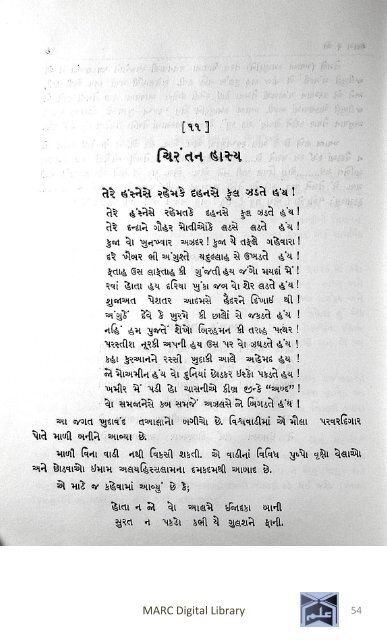 [ ૧૧ ]
ચિરંતન હાસ્ય
તેરે હંસ્નેસે રહેમકે દહનસે ફુલ ઝડતે હંય !
તેરે હંસ્નેસે રહેમતકે દહનસે ફુલ ઝડતે હંય !
તેરે દન્દાને ગૌહર મોતીઓંકે લડસે લડતે હંય !
કુજા વો ખુનખ્વાર અઝદર ! કુજા યે તફલે ગહેવારા !
દરે ખેબર ભી અંગુશ્તે યદુલ્લાહ સે ઉખડતે હંય !
ફતાહ ઉસ લાફતાહ કી ગુંજતી હય જંગે મયદાં મેં !
રવાં હોતા હય દરિયા ખુંકા જબ વો શેર લડતે હંય !
શુજાઅત પેશતર આદમસે હૈદરને દિખાઇ થી !
અંગુઠે દેવે કે ખુરમે કી છાલોં સે જકડતે હંય !
નહિં હમ પુજતે શેખો બિરહમન કી તરાહ પત્થર !
પરસ્તીશ નૂરકી અપની હય ઉસ પર વો ઝઘડતે હંય !
કહા કુરઆનને રસ્સી ખુદાકી આલે અહેમદ હય !
જો મોઅમીન હંય વો દુનિયાં છોડકર ઇસ્કો પકડતે હંય !
ખમીર મેં પડી હો ચાસનીએ કીઝ્બ જીન્કે “અબ્દ” !
વો સમજાનેસે કબ સમજે અઝલસે જો બિગડતે હંય !
આ જગત ખુદાવંદ તઆલાનો બગીચો છે. વિશ્વવાડીમાં એ મૌલા પરવરદિગાર
પોતે માળી બનીને આવ્યા છે.
માળી વિના વાડી નથી વિકસી શકતી. એ વાડીનાં વિવિધ પુષ્પો વૃક્ષો વેલાઓ
અને છોડવાઓ ઇમામ અલયહિસ્સલામના દમકદમથી આબાદ છે.
એ માટે જ કહેવામાં આવ્યું છે કે;
હોતા ન જો વો આલમે ઇજાદકા બાની
સુરત ન પકડતે કભી યે ગુલશને ફાની.
MARC Digital Library
54